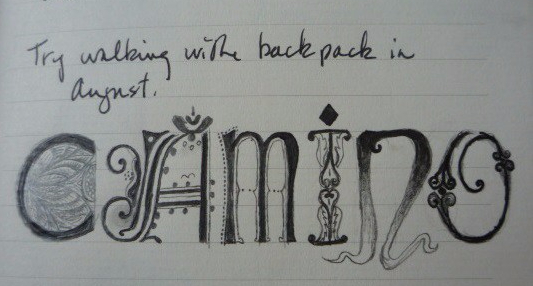 Try walking withe backpack in
August.
CAMINO